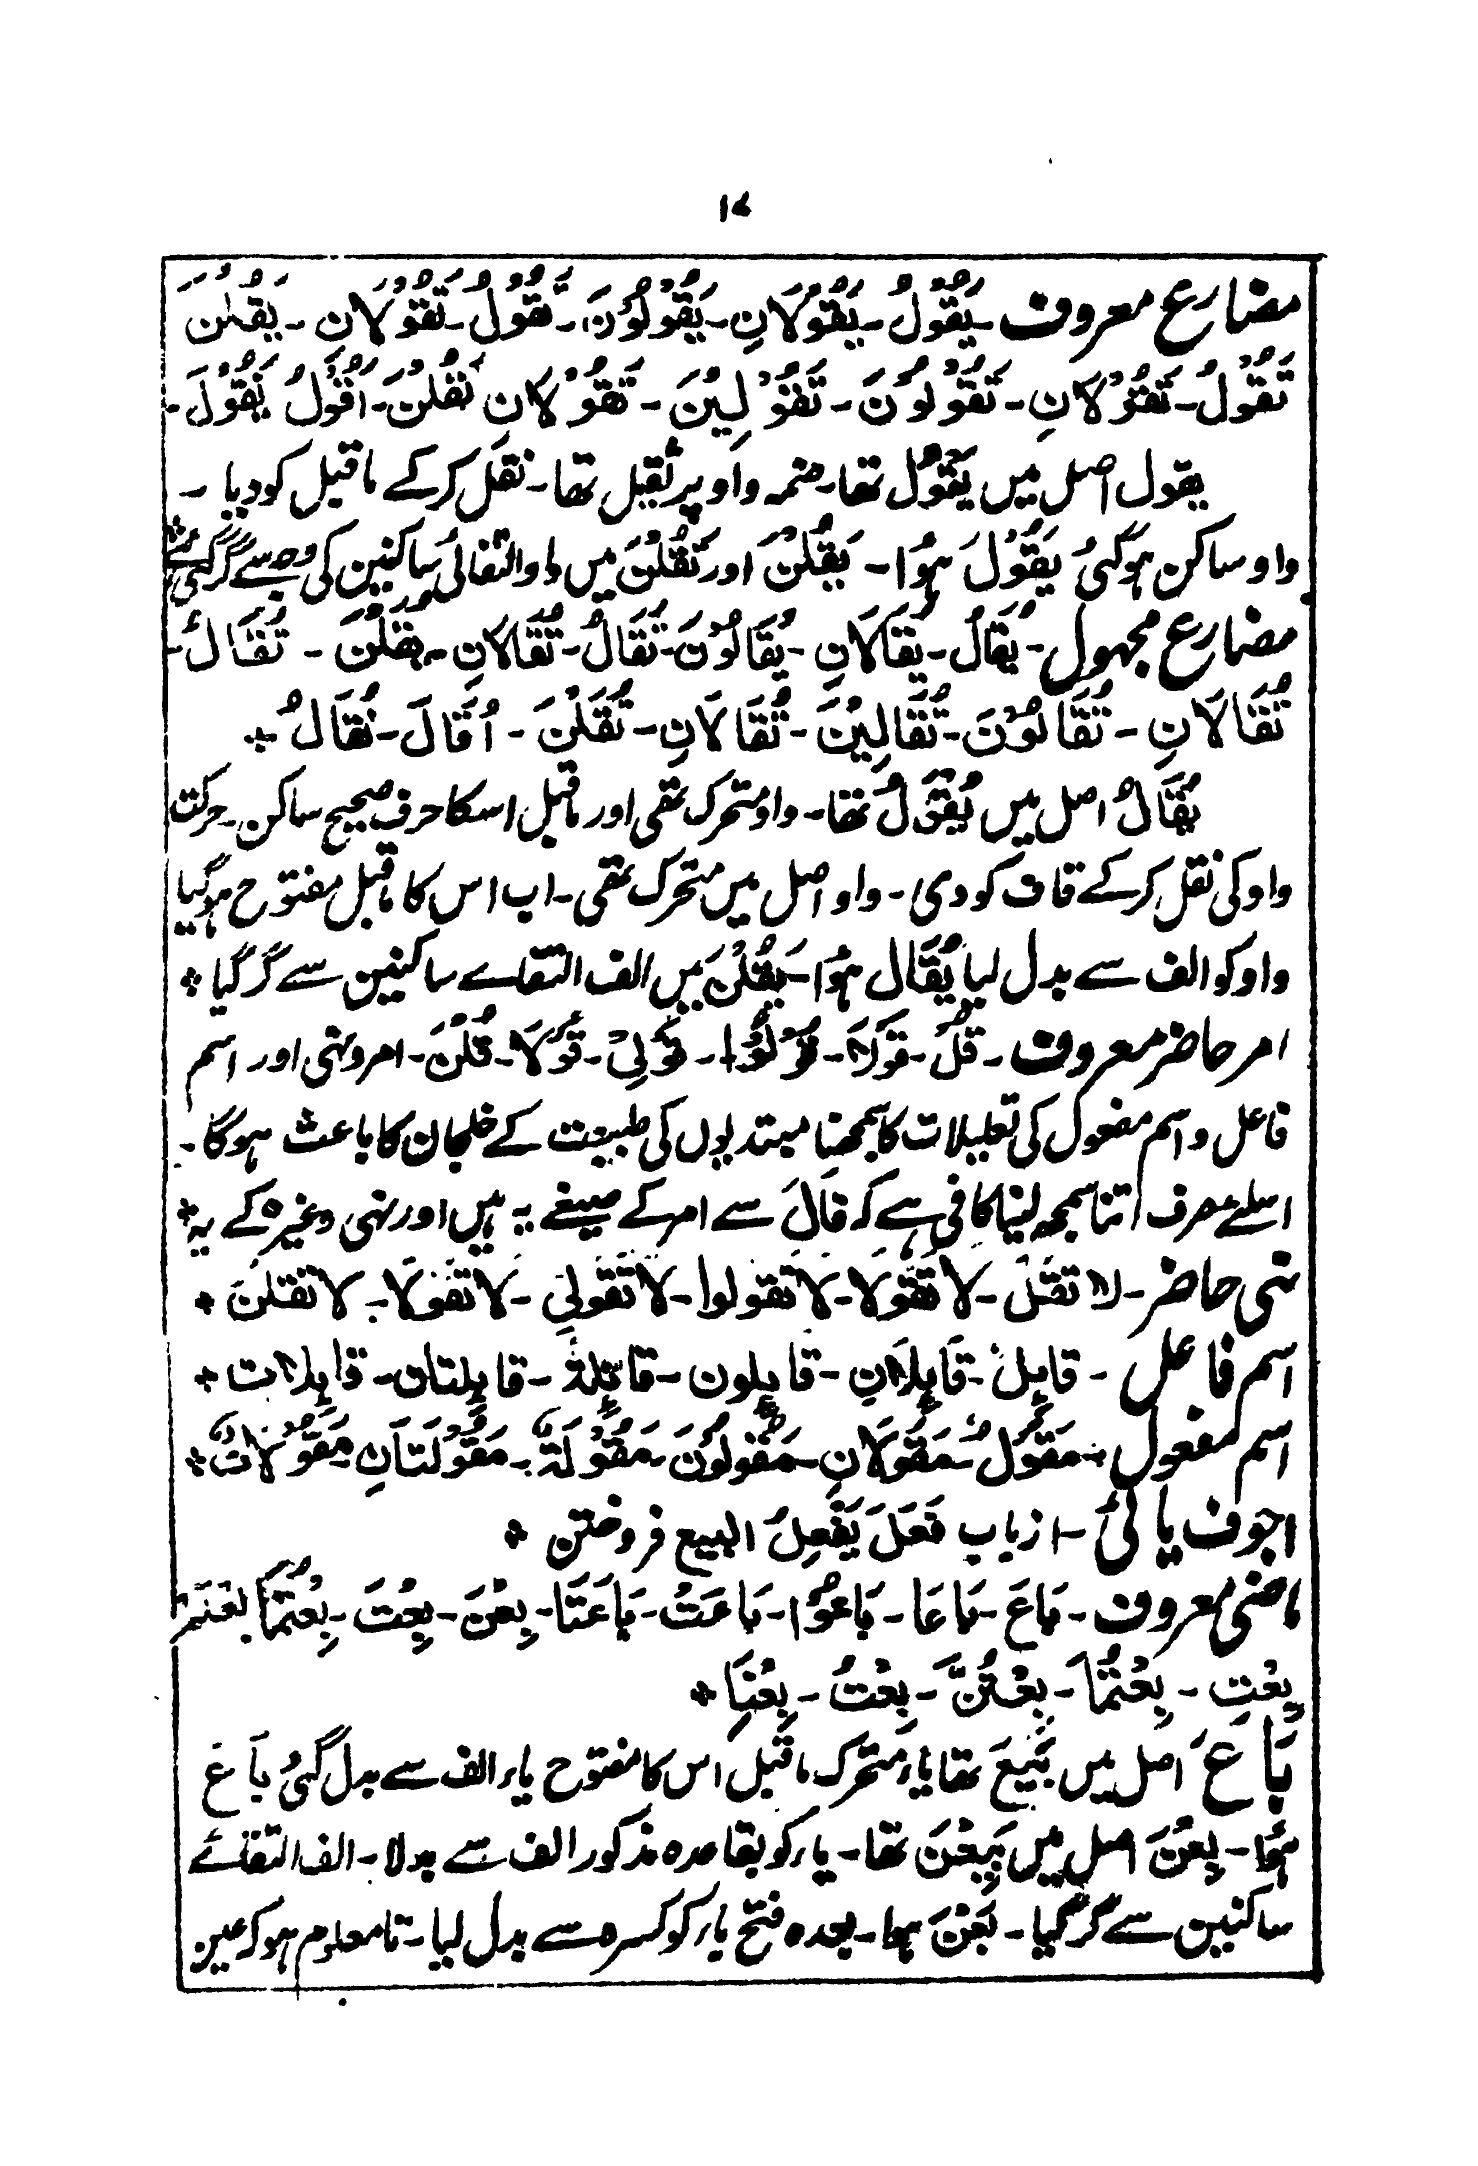 ۱۷
مضارع معروف ـ يَقُوْلُ ـ يَقُوْلَانِ ـ يَقُوْلُوْنَ ـ تَقُوْلُ ـ تَقُوْلَانِ ـ يَقُلْنَ
تَقُوْلُ ـ تَقُوْلَانِ ـ تَقُوْلُوْنَ ـ تَقُوْلِيْنَ ـ تَقُوْلَانِ تَقُلْنَ ـ اَقُوْلُ نَقُوْلُ ـ
یقول اصل میں يَقْوُلُ تھا ـ ضمہ واو پر ثقیل تھا ـ نقل کرکے ماقبل کو دیا ـ
واو ساکن ہوگئی يَقُوْلُ ہُوا ـ يَقُلْنَ اور تَقُلْنَ میں واو التقائی ساکنین کی وجہ سے گرگئی ہے
مضارع مجہول ـ يُقَالُ ـ يُقَالَانِ ـ يُقَالُوْنَ ـ تُقَالُ ـ تُقَالَانِ ـ يُقَلْنَ ـ تُقَالُ ـ
تُقَالَانِ ـ تُقَالُوْنَ ـ تُقَالِيْنَ ـ تُقَالَانِ ـ تُقَلْنَ ـ اُقَالَ ـ نُقَالُ ٭
يُقَالُ اصل میں يُقْوَلُ تھا ـ واو متحرک تھی اور ماقبل اسکا حرف صحیح ساکن ـ حرکت
واو کی نقل کرکے قاف کو دی ـ واو اصل میں متحرک تھی ـ اب اس کا ماقبل مفتوح ہوگیا
واو کو الف سے بدل لیا يُقَال ہُوا ـ يُقَلْنَ میں الف التقاے ساکنین سے گر گیا ٭
امر حاضر معروف ـ قُلْ ـ قُوْلَا ـ قُوْلُوْا ـ قُوْلِىْ ـ قُوْلَا ـ قُلْنَ ـ امر ونہی اور اسم
فاعل و اسم مفعول کی تعلیلات کا سمجھنا مبتدیوں کی طبیعت کے خلجان کا باعث ہوگا ـ
اسلئے صرف اتنا سمجھ لینا کافی ہے کہ قَالَ سے امر کے صیغے یہ ہیں اور نہی وغیرہ کے یہ ٭
نہی حاضر ـ لا تَقُلْ ـ لَا تَقُوْلَا ـ لَا تقولوا ـ لَا تَقُولِي ـ لَا تَقُولَا ـ لا تَقُلْنَ ٭
اسم فاعل ـ قايِلٌ ـ قَايِلَانِ ـ قايلون ـ قايِلة ـ قايِلتان ـ قايِلات ٭
اسم مفعول ـ مَقُوْلٌ ـ مَقُوْلَانِ ـ مَقُولُوْنَ ـ مَقُوْلَةٌ ـ مَقُوْلَتَانِ مَقُوْلَاتٌ ٭
اجوف یائی ـ از باب فَعَلَ يَفْعِلُ البیع فروختن ٭
ماضی معروف ـ بَاعَ ـ بَاعَا ـ بَاعُوْا ـ بَاعَتْ ـ بَاعَتَا ـ بِعْنَ ـ بِعْتَ ـ بِعْتُمَا بعتم
بِعْتِ ـ بِعْتُمَا ـ بِعْتُنَّ ـ بِعْتُ ـ بِعْنَا ٭
بَاعَ اصل میں بَيَعَ تھا یاء متحرک ماقبل اس کا مفتوح یاء الف سے بدل گئی بَاعَ
ہُوا ـ بِعْنَ اصل میں بَيَعْنَ تھا ـ یاء کو بقاعدہ مذکور الف سے بدلا ـ الف التقائے
ساکنین سے گرگیا ـ بَعْنَ ہوا ـ بعدہ فتح باء کو کسرہ سے بدل لیا ـ تا معلوم ہو کہ عین